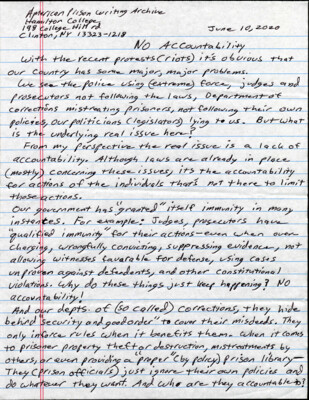 American Prison Writing Archive
Hamilton College
198 College Hill rd
Clinton, NY 13323-1218
June 10, 2020
NO Accountability
With the recent protests (riots) it's obvious that
our country has some major, major problems.
We see the police using (extreme) force, judges and
prosecutors not following the laws, Department of
corrections mistreating prisoners, not following their own
policies, our politicians (legislators) lying to us. But what is
the underlying real issue here?
From my perspective the real issue is a lack of
accountability. Although laws are already in place
(mostly) concerning these issues, it's the accountability
for actions of the individuals that's not there to limit
those actions.
Our government has "granted" itself immunity in many
instances. For example: Judges, prosecutors have
"qualified immunity" for their actions—even when over-
charging, wrongfully convicting, suppressing evidence, not
allowing witnesses favorable for defense, using cases
unproven against defendants, and other constitutional
violations. Why do these things just keep happening? NO
accountability!
And our depts. of (so called) corrections, they hide
behind "security and good order" to cover their misdeeds. They
only inforce rules when it benefits them. When it comes
to prisoner property theft or destruction, mistreatments by
others, or even providing a "proper" (by policy) prison library—
They (prison officials) just ignore their own policies and
do whatever they want. And who are they accountable to?